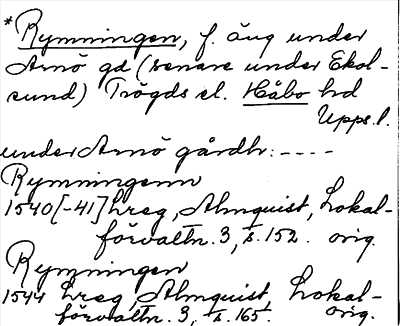 * Rymningen, f. äng under
Arnö gd (senare under Ekol-
sund) Trögds el. Håbo hd
Upps. l.
under Arnö gårdh: ----
Rymningenn
1540[-41] hreg, Almquist, Lokal-
förvaltn. 3, s. 152. orig.
Rymningen
1544 hreg, Almquist, Lokal-
förvaltn. 3, s. 165. orig.